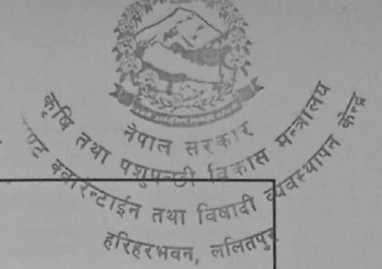 नेपाल सरकार
कृषि तथा पशुपन्छी विकास मन्त्रालय
क्वारेन्टाईन तथा विषादी व्यवस्थापन केन्द्र
हरिहरभवन, ललितपुर